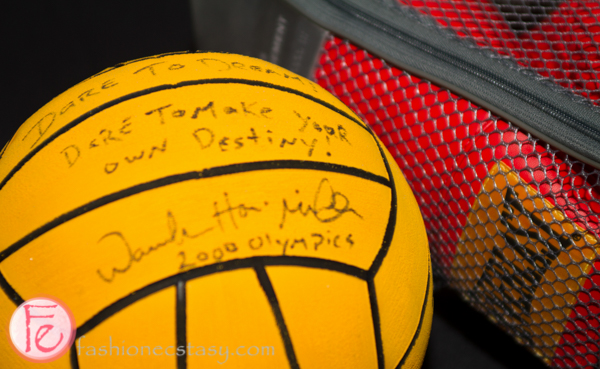 DARE TO DREAM!
DARE TO MAKE YOUR
OWN DESTINY!
2000 OLYMPICS
Fe
fashionecstasy.com